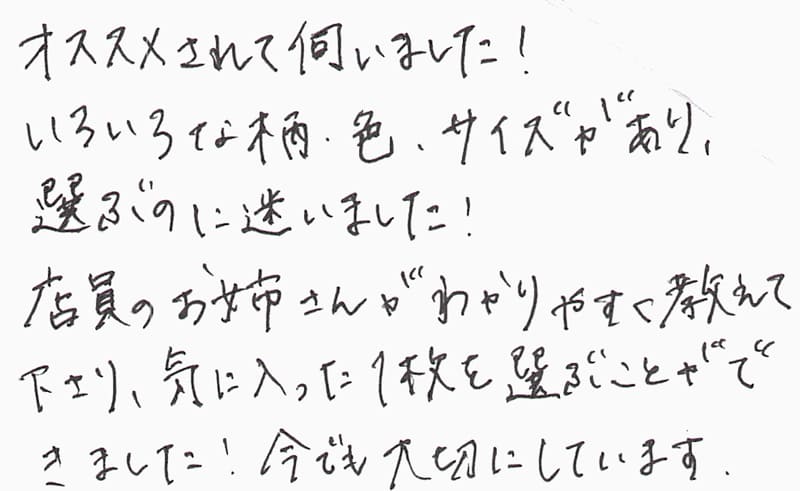 オススメされて伺いました!
いろいろな柄・色、サイズがあり、
選ぶのに迷いました!
店員のお姉さんがわかりやすく教えて
下さり、気に入った1枚を選ぶことがで
きました!今でも大切にしています.